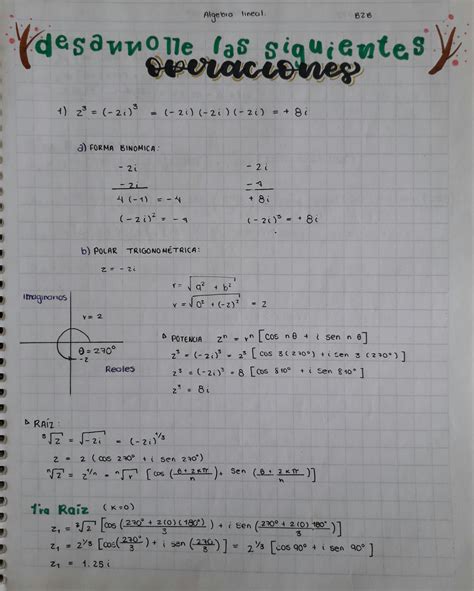 Algebra lineal. B2B
desarrolle las siguientes
operaciones
1) z³ = (-2i)³ = (-2i)(-2i)(-2i) = +8i
a) FORMA BINOMICA:
-2i -2i
-2i -4
4(-1) = -4 +8i
(-2i)² = -4 (-2i)³ = +8i
b) POLAR TRIGONOMÉTRICA:
z = -2i
r = √a² + b²
Imaginarios
r = √0² + (-2)² = 2
r = 2
POTENCIA zⁿ = rⁿ [cos nθ + i sen nθ]
θ = 270°
z³ = (-2i)³ = 2³ [cos 3(270°) + i sen 3(270°)]
-2
Reales
z³ = (-2i)³ = 8 [cos 810° + i sen 810°]
z³ = 8i
RAÍZ:
³√z = √-2i = (-2i)^1/3
z = 2 (cos 270° + i sen 270°)
ⁿ√z = z^1/n = ⁿ√r [cos (θ + 2kπ/n) + sen (θ + 2kπ/n)]
1ra Raíz (K=0)
z₁ = ³√2 [cos (270° + 2(0)(180°)/3) + i sen (270° + 2(0) 180°/3)]
z₁ = 2^1/3 [cos (270°/3) + i sen (270°/3)] = 2^1/3 [cos 90° + i sen 90°]
z₁ = 1.25i